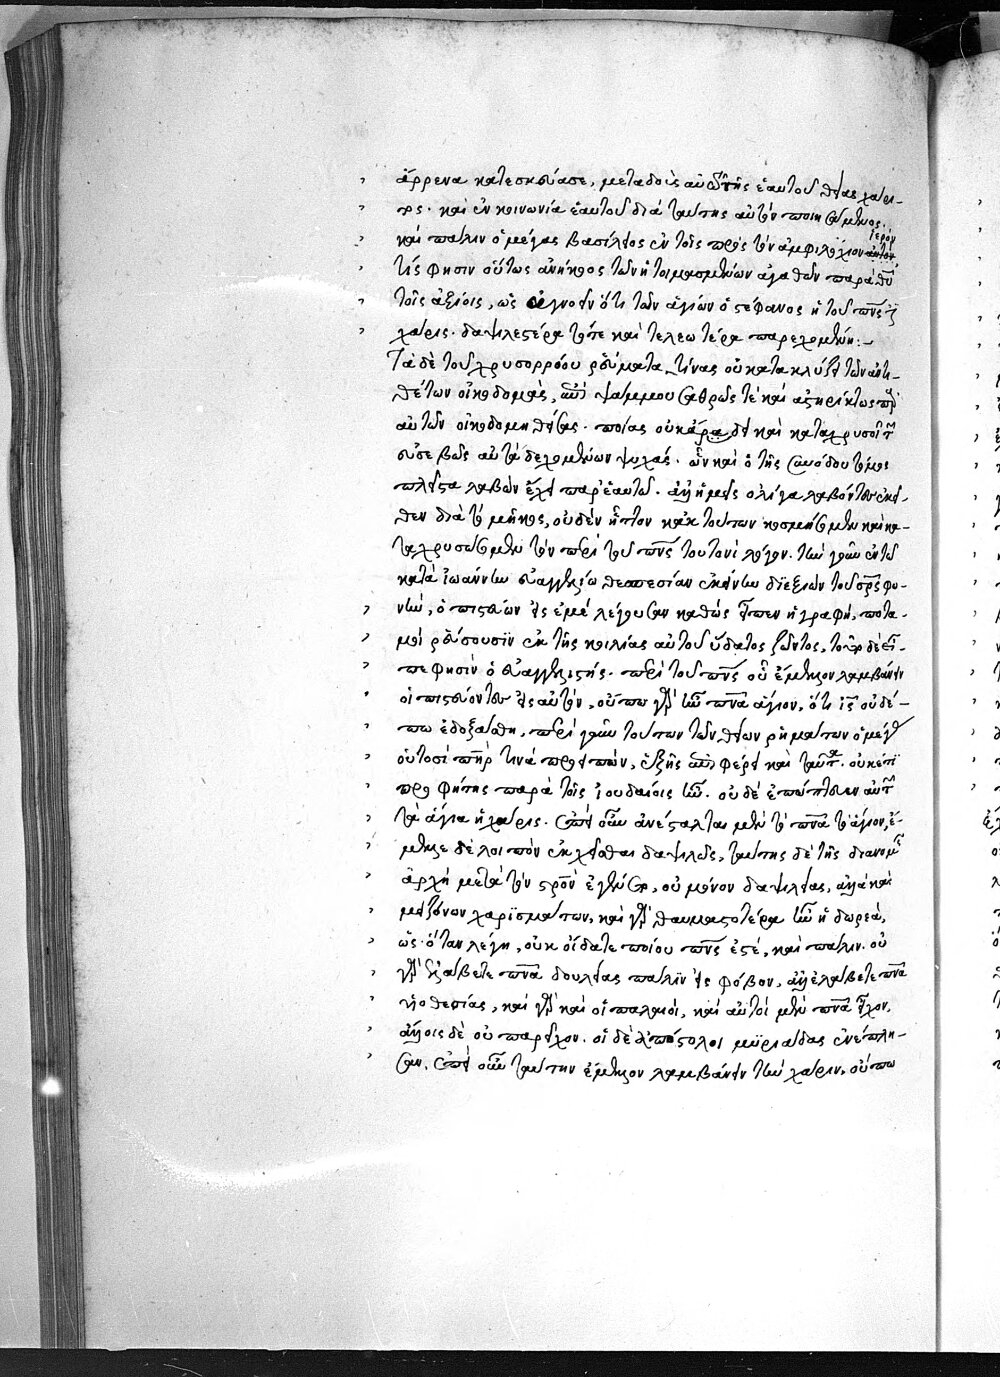 ἄρρενα κατεσκεύασε, μεταδοὺς αὐτῆς ἑαυτοῦ θείας χάρι-
τος. καὶ ἐν κοινωνία ἑαυτοῦ διὰ ταύτης αὐτὸν ποιησάμενος.
ἱερὸν
καὶ πάλιν ὁ μέγας βασίλειος ἐν τοῖς πρὸς τὸν ἀμφιλόχιον αὐτὸν,
τίς φησιν οὕτως ἀνήκοος τῶν ἡτοιμασμένων ἀγαθῶν παρὰ θῦ
τοῖς ἀξίοις, ὡς ἀγνοεῖν ὅτι τῶν ἁγίων ὁ στέφανος ἡ τοῦ πνς ἐστι
χάρις. δαψιλεστέρα τότε καὶ τελεωτέρα παρεχομένη:-
Τὰ δὲ τοῦ χρυσορρόου ῥεύματα, τίνας οὐ κατακλύζει τῶν ἀντι-
θέτων οἰκοδομὰς, ἐπὶ ψάμμου σαθρῶς τὲ καὶ ἀστηρίκτως παρ'
αὐτῶν οἰκοδομηθείσας. ποίας οὐκ ἄρδει καὶ καταχρυσοῖ τῶν
εὐσεβῶς αὐτὰ δεχομένων ψυχάς. ὧν καὶ ὁ τῆς συνόδου τόμος
πλεῖστα λαβὼν ἔχει παρ' ἑαυτῶ. ἀλλ' ἡμεῖς ὀλίγα λαβόντες ἐκεῖ-
θεν διὰ τὸ μῆκος, οὐδὲν ἧττον κἀκ τούτων κοσμήσωμεν καὶ κα-
ταχρυσώσωμεν τὸν περὶ τοῦ πνς τουτονὶ λόγον. τὴν γοῦν ἐν τῶ
κατὰ ἰωάννην εὐαγγελίω θεσπεσίαν ἐκείνην διεξιὼν τοῦ σρς φω-
νὴν, ὁ πιστεύων εἰς ἐμὲ λέγουσαν καθὼς εἶπεν ἡ γραφὴ, ποτα-
μοὶ ῥεύσουσιν ἐκ τῆς κοιλίας αὐτοῦ ὕδατος ζῶντος, τοῦτο δὲ εἶ-
πε φησὶν ὁ εὐαγγελιστής. περὶ τοῦ πνς οὗ ἔμελλον λαμβάνειν
οἱ πιστεύοντες εἰς αὐτὸν, οὔπω γὰρ ἦν πνα ἅγιον, ὅτι ις οὐδέ-
πω ἐδοξάσθη, περὶ γοῦν τούτων τῶν θείων ῥημάτων ὁ μέγας
οὑτοσὶ πηρ τινὰ προειπὼν, ἑξῆς ἐπιφέρει καὶ ταῦτα. οὐκέτι
προφήτης παρὰ τοῖς ἰουδαίοις ἦν. οὐδὲ ἐπώπτευεν αὐτῶν
τὰ ἅγια ἡ χάρις. ἐπεὶ οὖν ἀνέσταλται μὲν τὸ πνα τὸ ἅγιον, ἔ-
μελλε δὲ λοιπὸν ἐκχεῖσθαι δαψιλῶς, ταύτης δὲ τῆς διανομῆς
ἀρχὴ μετὰ τὸν σρον ἐγένετο, οὐ μόνον δαψιλείας, ἀλλὰ καὶ
μειζόνων χαρισμάτων, καὶ γὰρ θαυμαστοτέρα ἦν ἡ δωρεὰ,
ὡς ὅταν λέγη, οὐκ οἴδατε ποίου πνς ἐστέ, καὶ πάλιν. οὐ
γὰρ ἐλάβετε πνα δουλείας πάλιν εἰς φόβον, ἀλλ' ἐλάβετε πνα
υἱοθεσίας, καὶ γὰρ καὶ οἱ παλαιοὶ, καὶ αὐτοὶ μὲν πνα εἶχον,
ἄλλοις δὲ οὐ παρεῖχον. οἱ δὲ ἀπόστολοι μυριάδας ἐνέπλη-
σαν. ἐπεὶ οὖν ταύτην ἔμελλον λαμβάνειν τὴν χάριν, οὔπω